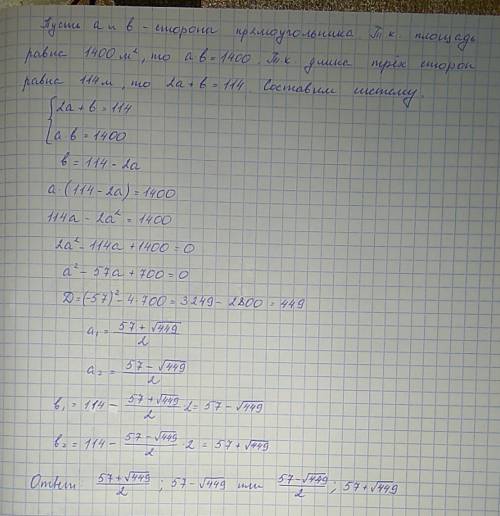 Пусть a и b - сторона прямоугольника. Т.к. площадь
равна 1400 м², то a b = 1400. Т.к. длина трёх сторон
равна 114 м, то 2a + b = 114. Составим систему.
{ 2a + b = 114
a b = 1400
b = 114 - 2a
a · (114 - 2a) = 1400
114a - 2a² = 1400
2a² - 114a + 1400 = 0
a² - 57a + 700 = 0
D = (-57)² - 4·700 = 3249 - 2800 = 449
a₁ = (57 + √449) / 2
a₂ = (57 - √449) / 2
b₁ = 114 - (57 + √449) / 2 · 2 = 57 - √449
b₂ = 114 - (57 - √449) / 2 · 2 = 57 + √449
Ответ (57 + √449) / 2 ; 57 - √449 или (57 - √449) / 2 ; 57 + √449